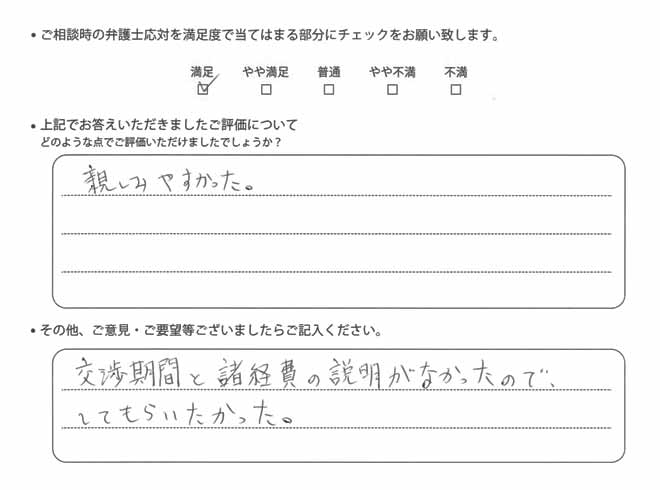 • ご相談時の弁護士応対を満足度で当てはまる部分にチェックをお願い致します。
満足 やや満足 普通 やや不満 不満
☑ □ □ □ □
• 上記でお答えいただきましたご評価について
どのような点でご評価いただけましたでしょうか？
親しみやすかった。
• その他、ご意見・ご要望等ございましたらご記入ください。
交渉期間と諸経費の説明がなかったので、
してもらいたかった。